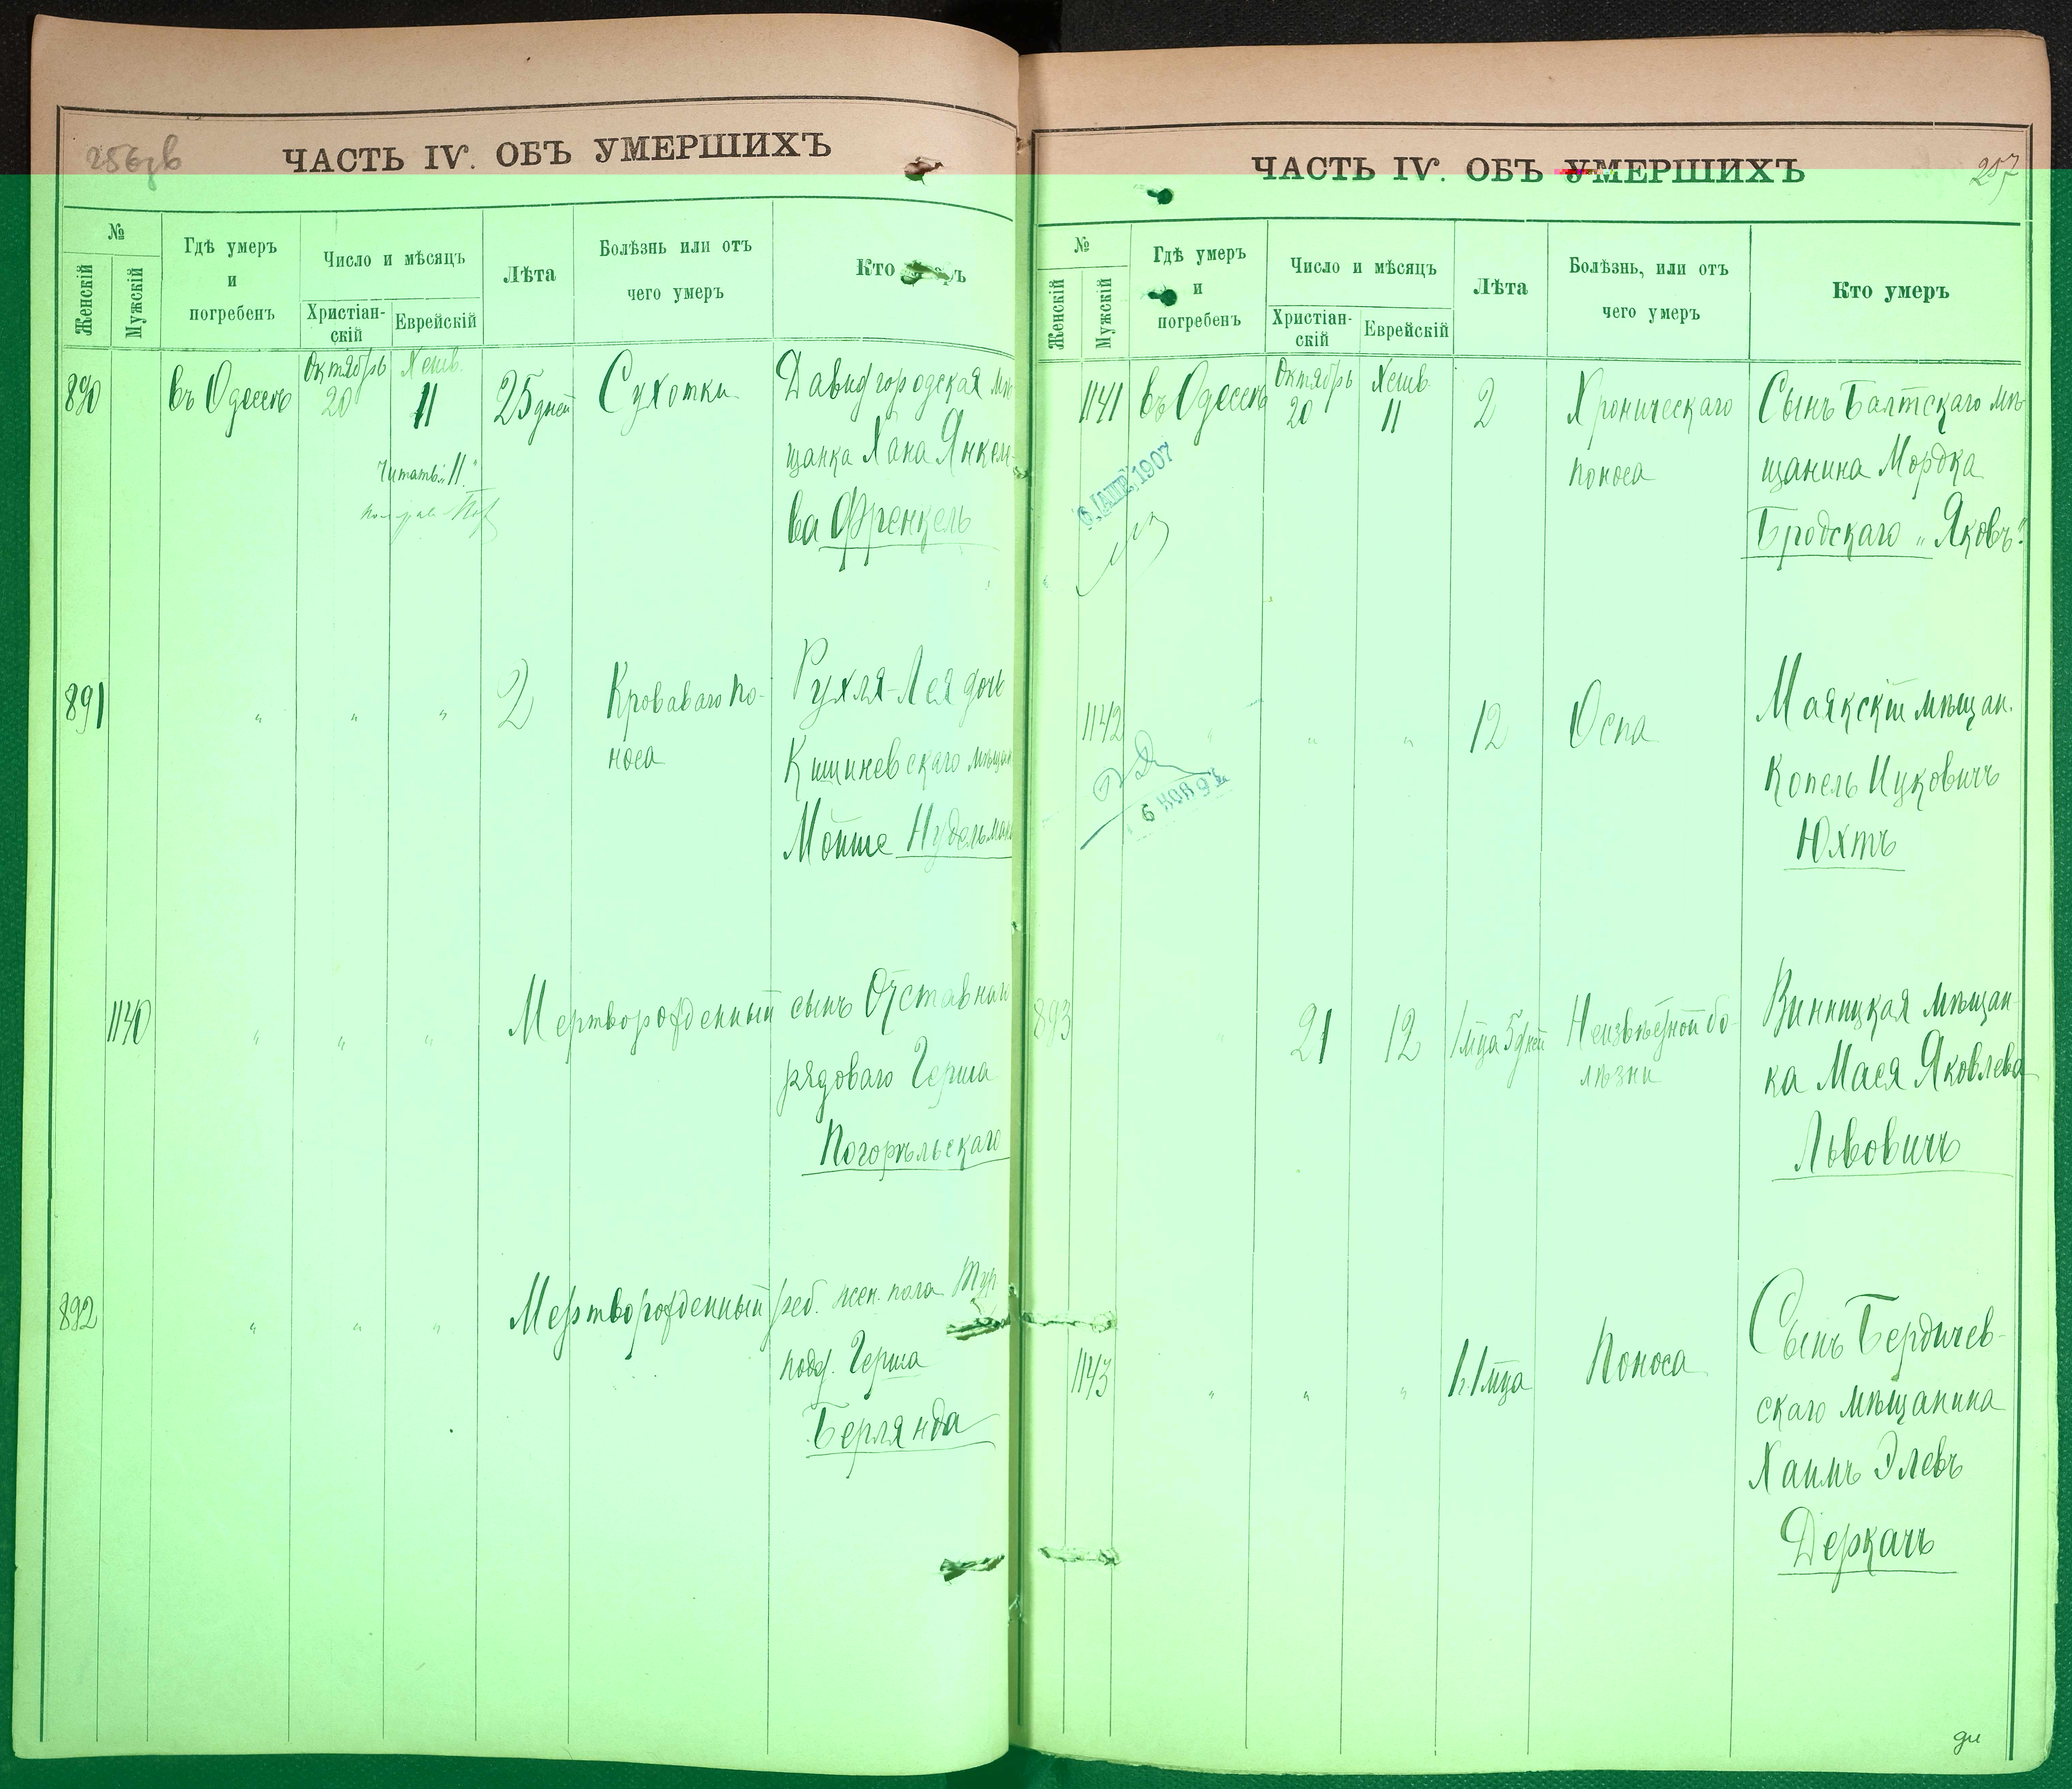 256зв
ЧАСТЬ IV. ОБЪ УМЕРШИХЪ
№
Женскій
Мужскій
Гдѣ умеръ
и
погребенъ
Число и мѣсяцъ
Христіан-
скій
Еврейскій
Лѣта
Болѣзнь или отъ
чего умеръ
Кто
890 въ Одессѣ Октябрь 20 Хешв. 11 25 дней Сухотки Давидгородская мѣ-
щанка Хана Янкеле-
ва Френкель
Читать: „11."
891 " " " 2 Кроваваго по-
носа
Рухля-Лея дочь
Кишиневскаго мѣщан
Мойше Нудельман
1140 " " " Мертворожденный сынъ Отставнаго
рядоваго Герша
Погорѣльскаго
892 " " " Мертворожденный реб. жен. пола Тур.
подд. Герша
Берлянда
ЧАСТЬ IV. ОБЪ УМЕРШИХЪ
257
№
Женскій
Мужскій
Гдѣ умеръ
и
погребенъ
Число и мѣсяцъ
Христіан-
скій
Еврейскій
Лѣта
Болѣзнь, или отъ
чего умеръ
Кто умеръ
1141 въ Одессѣ Октябрь 20 Хешв. 11 2 Хроническаго
поноса
Сынъ Балтскаго мѣ-
щанина Мордка
Бродскаго „Яковъ"
6 АПР. 1907
1142 " " " 12 Оспа Маякскій мѣщан.
Копель Ицковичъ
Юхтъ
6 НОЯ 9
893 " 21 12 1 мца 5 дней Неизвѣстной бо-
лѣзни
Винницкая мѣщан-
ка Мася Яковлева
Львовичъ
1143 " " " Поноса Сынъ Бердичев-
скаго мѣщанина
Хаимъ Элевъ
Деркачъ